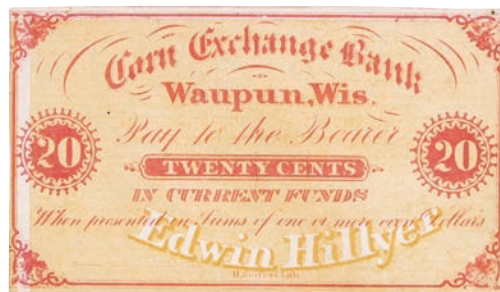 Corn Exchange Bank
Waupun, Wis.
Pay to the Bearer
20 TWENTY CENTS 20
IN CURRENT FUNDS
When presented in Sums of one or more even Dollars
Edwin Hillyer